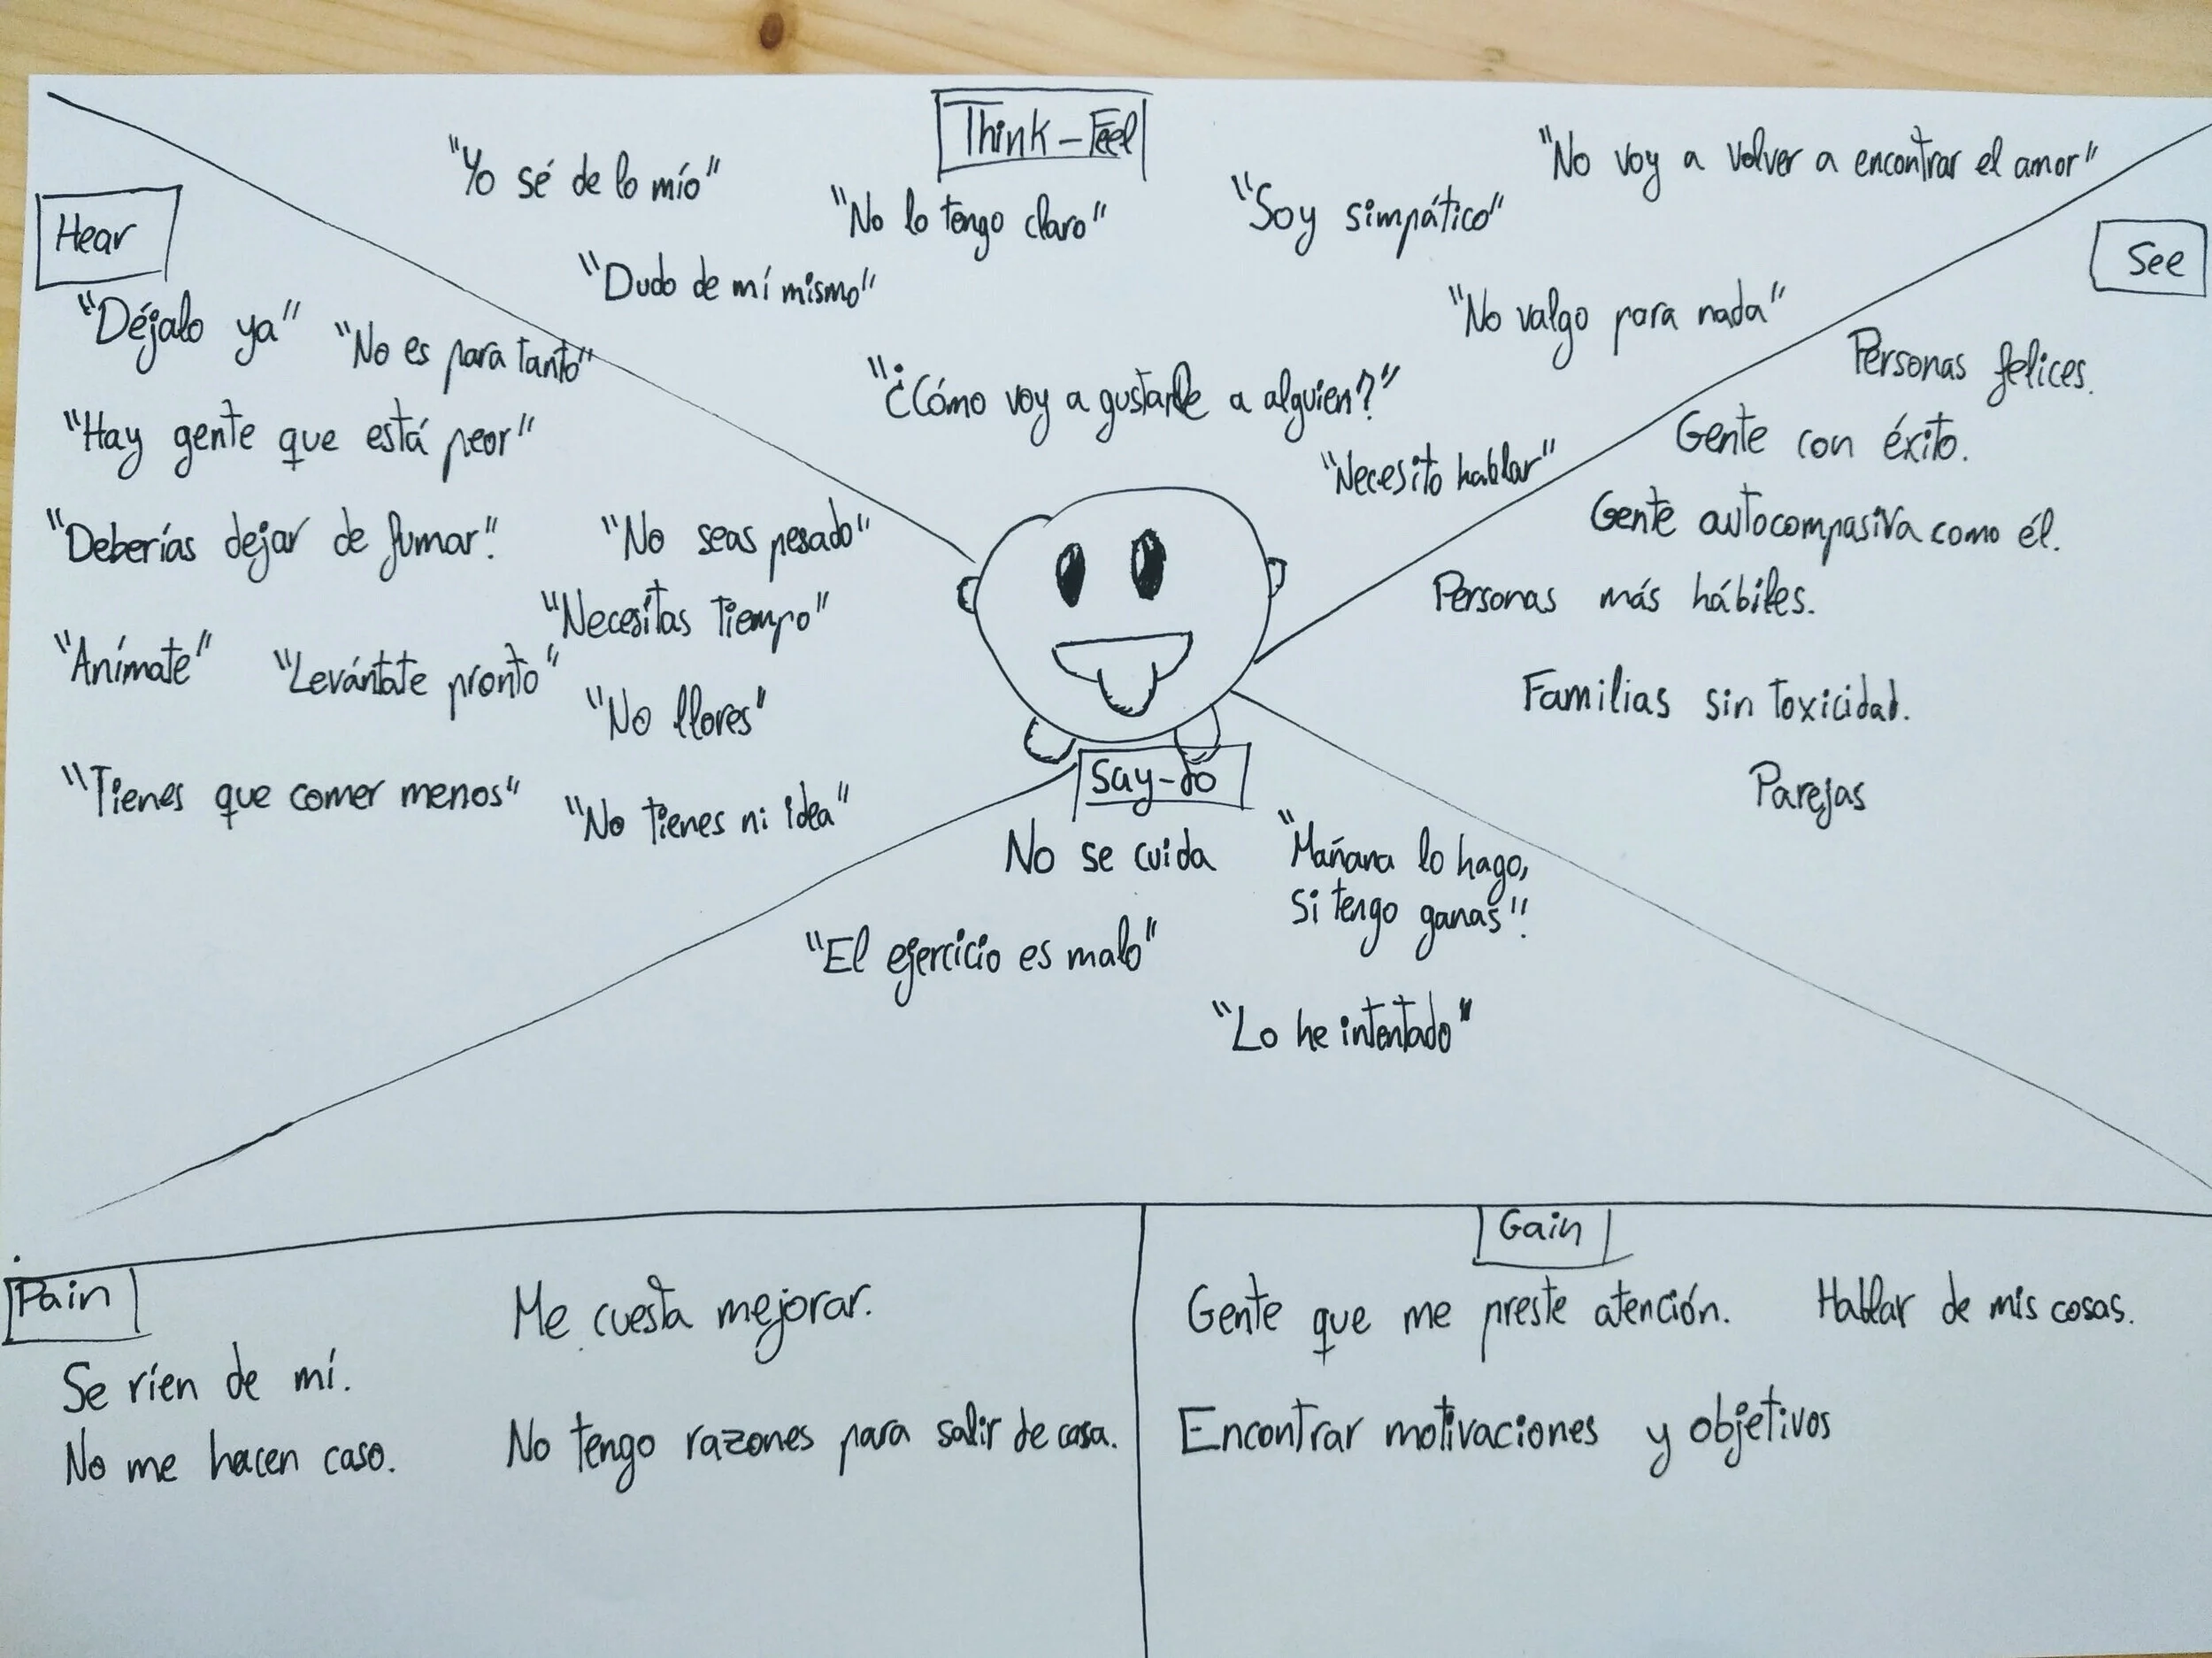 Think-Feel
"Yo sé de lo mío"
"No lo tengo claro"
"Soy simpático"
"No voy a volver a encontrar el amor"
"Dudo de mí mismo"
"No valgo para nada"
"¿Cómo voy a gustarle a alguien?"
"Necesito hablar"
Hear
"Déjalo ya"
"No es para tanto"
"Hay gente que está peor"
"Deberías dejar de fumar".
"No seas pesado"
"Necesitas tiempo"
"Anímate"
"Levántate pronto"
"No llores"
"Tienes que comer menos"
"No tienes ni idea"
See
Personas felices.
Gente con éxito.
Gente autocompasiva como él.
Personas más hábiles.
Familias sin toxicidad.
Parejas
Say-do
No se cuida
"Mañana lo hago,
si tengo ganas".
"El ejercicio es malo"
"Lo he intentado"
Pain
Me cuesta mejorar.
Se ríen de mí.
No me hacen caso.
No tengo razones para salir de casa.
Gain
Gente que me preste atención.
Hablar de mis cosas.
Encontrar motivaciones y objetivos